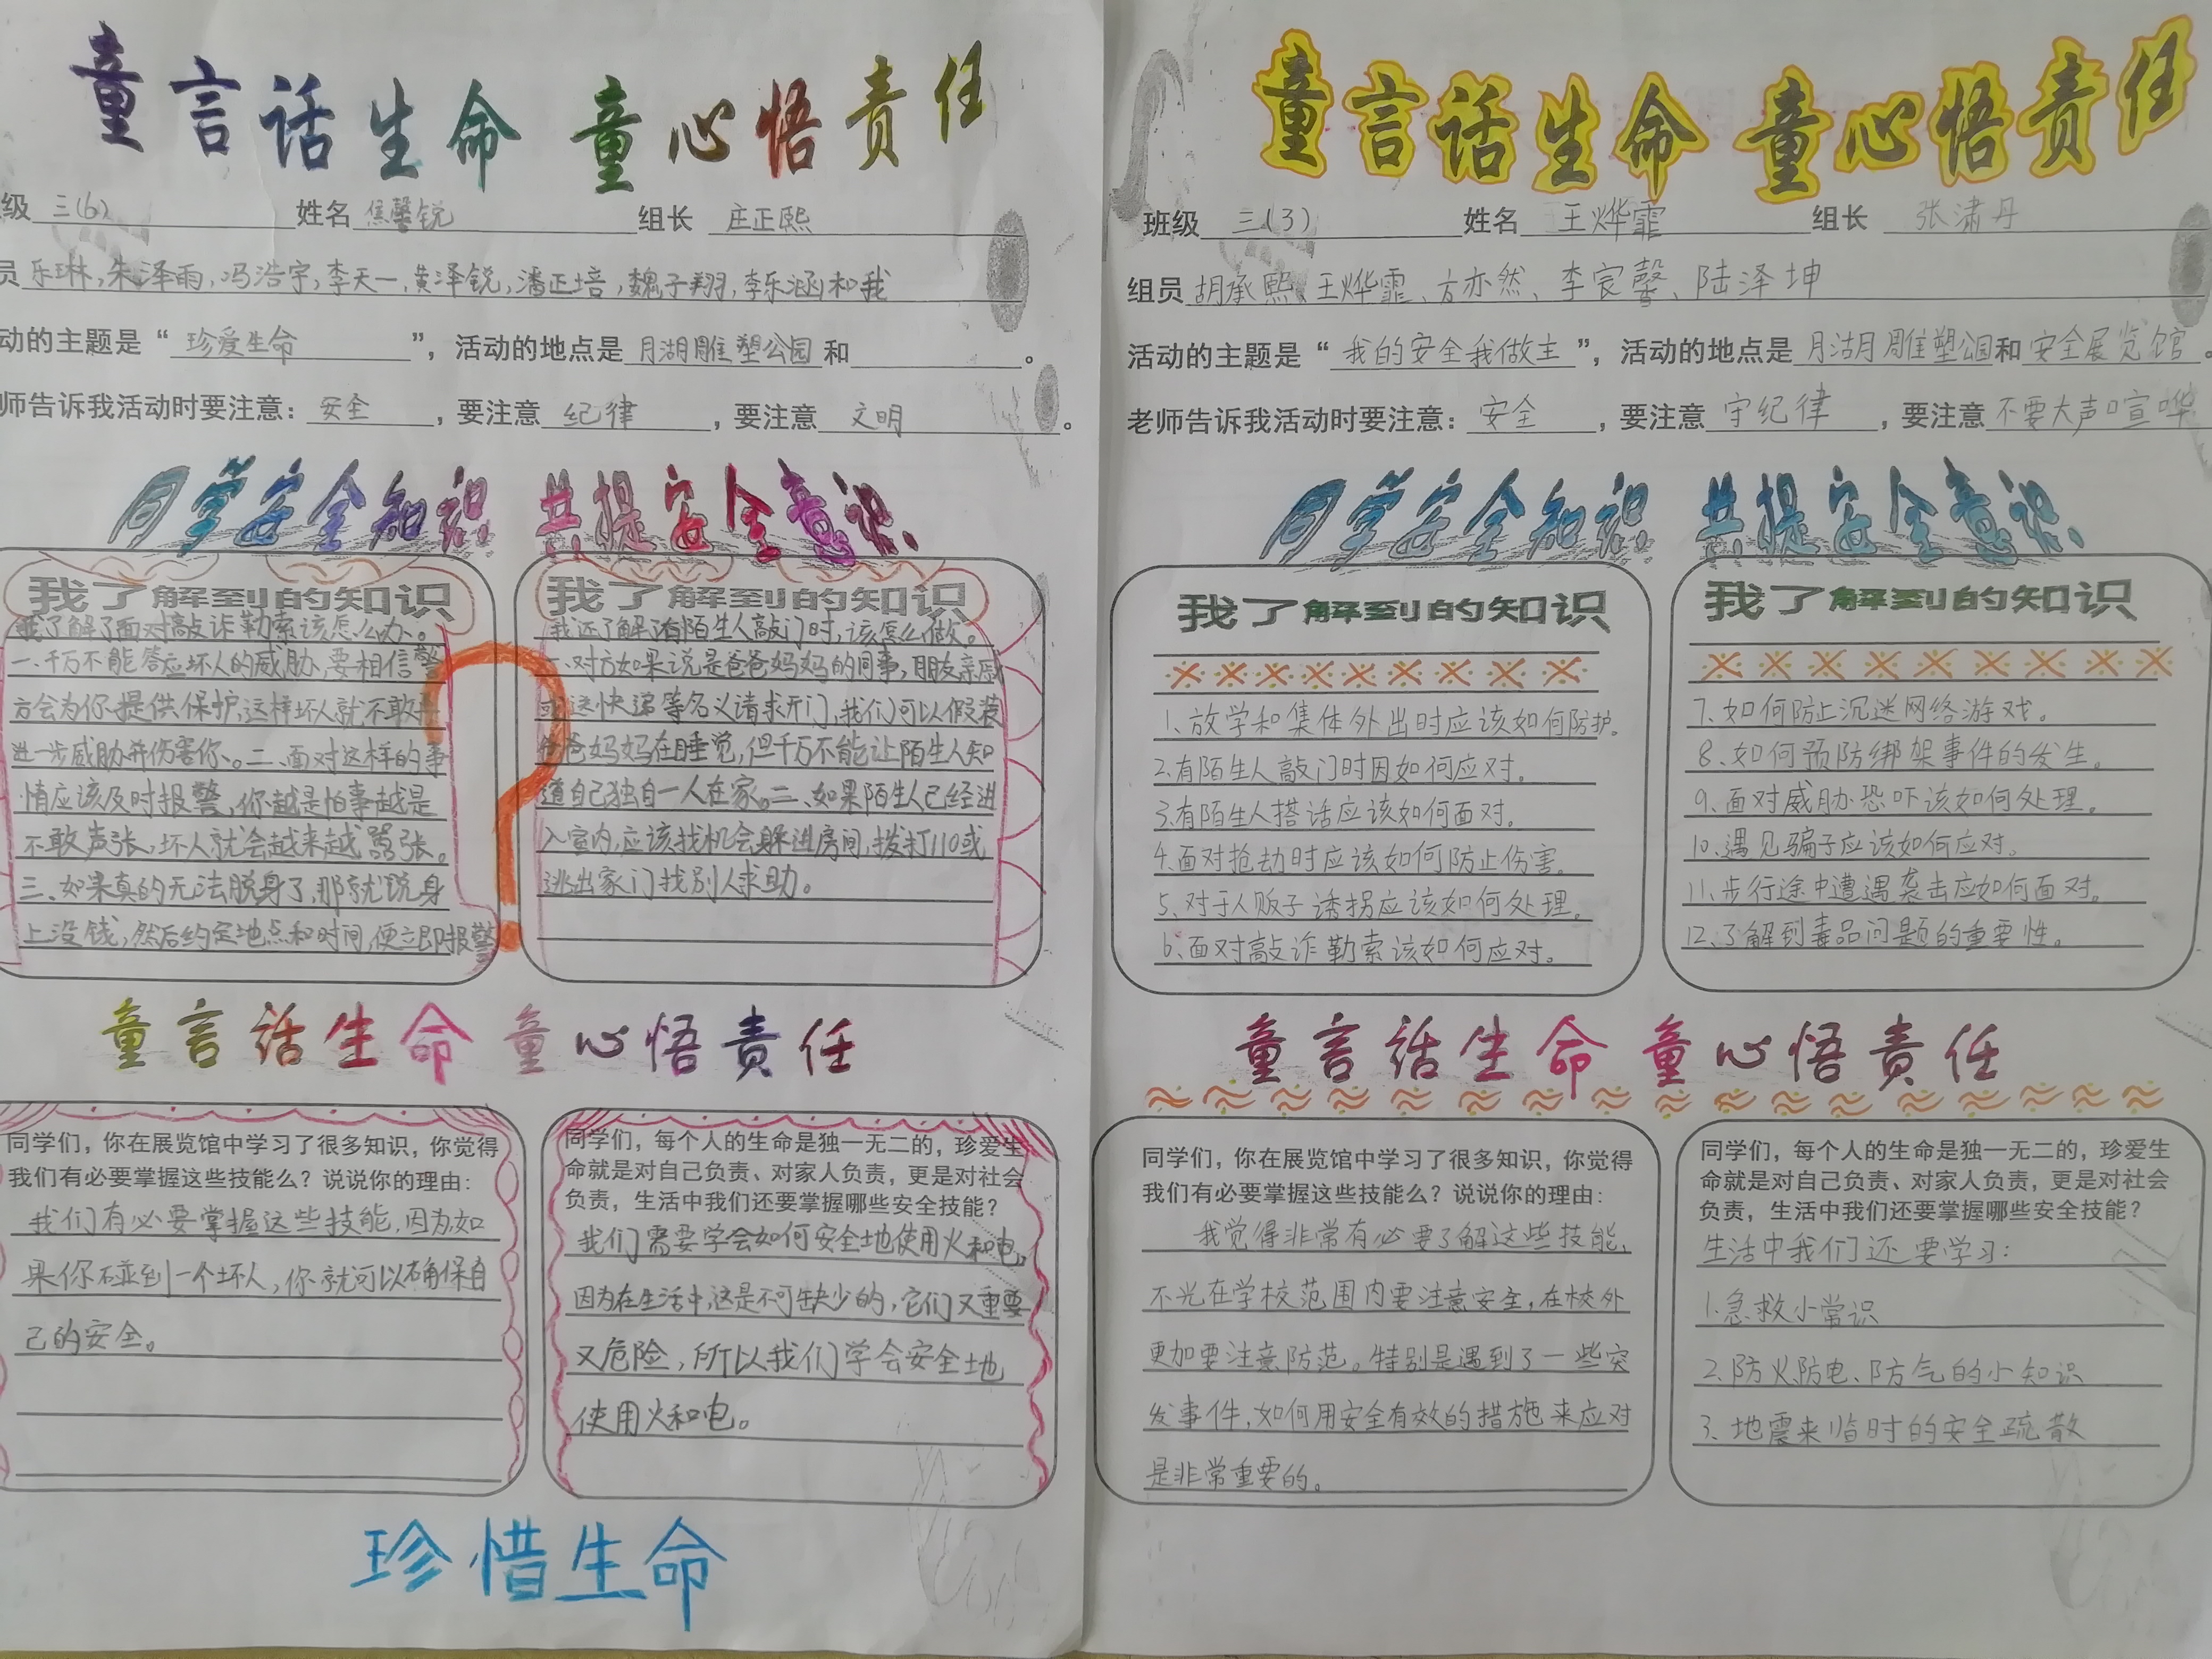 童言话生命 童心悟责任
级 三(6) 姓名 焦馨锐 组长 庄正熙
员 乐琳,朱泽雨,冯浩宇,李天一,黄泽锐,潘正培,魏子翔,李乐涵和我
动的主题是“珍爱生命”，活动的地点是 月湖雕塑公园 和 。
师告诉我活动时要注意：安全，要注意 纪律，要注意 文明。
同学安全知识 共提安全意识
我了解到的知识
我了解了面对敲诈勒索该怎么办。
一、千万不能答应坏人的威胁,要相信警
方会为你提供保护,这样坏人就不敢再
进一步威胁并伤害你。二、面对这样的事
情应该及时报警,你越是怕事越是
不敢声张,坏人就会越来越嚣张。
三、如果真的无法脱身了,那就说身
上没钱,然后约定地点和时间,便立即报警
我了解到的知识
我还了解了有陌生人敲门时,该怎么做。
一、对方如果说是爸爸妈妈的同事,朋友亲戚
或送快递等名义请求开门,我们可以假装
爸爸妈妈在睡觉,但千万不能让陌生人知
道自己独自一人在家。二、如果陌生人已经进
入室内,应该找机会躲进房间,拨打110或
逃出家门找别人求助。
童言话生命 童心悟责任
同学们，你在展览馆中学习了很多知识，你觉得
我们有必要掌握这些技能么？说说你的理由：
我们有必要掌握这些技能,因为如
果你碰到一个坏人,你就可以确保自
己的安全。
同学们，每个人的生命是独一无二的，珍爱生
命就是对自己负责、对家人负责，更是对社会
负责，生活中我们还要掌握哪些安全技能？
我们需要学会如何安全地使用火和电,
因为在生活中,这是不可缺少的,它们又重要
又危险,所以我们学会安全地
使用火和电。
珍惜生命
童言话生命 童心悟责任
班级 三(3) 姓名 王烨霏 组长 张潇丹
组员 胡承熙、王烨霏、方亦然、李宸馨、陆泽坤
活动的主题是“我的安全我做主”，活动的地点是 月湖雕塑公园 和 安全展览馆。
老师告诉我活动时要注意：安全，要注意 守纪律，要注意 不要大声喧哗
同学安全知识 共提安全意识
我了解到的知识
1、放学和集体外出时应该如何防护。
2.有陌生人敲门时因如何应对。
3.有陌生人搭话应该如何面对。
4.面对抢劫时应该如何防止伤害。
5、对于人贩子诱拐应该如何处理。
6、面对敲诈勒索该如何应对。
我了解到的知识
7、如何防止沉迷网络游戏。
8、如何预防绑架事件的发生。
9、面对威胁恐吓该如何处理。
10、遇见骗子应该如何应对。
11、步行途中遭遇袭击应如何面对。
12、了解到毒品问题的重要性。
童言话生命 童心悟责任
同学们，你在展览馆中学习了很多知识，你觉得
我们有必要掌握这些技能么？说说你的理由：
我觉得非常有必要了解这些技能,
不光在学校范围内要注意安全,在校外
更加要注意防范。特别是遇到了一些突
发事件,如何用安全有效的措施来应对
是非常重要的。
同学们，每个人的生命是独一无二的，珍爱生
命就是对自己负责、对家人负责，更是对社会
负责，生活中我们还要掌握哪些安全技能？
生活中我们还要学习：
1.急救小常识
2.防火防电、防气的小知识
3、地震来临时的安全疏散